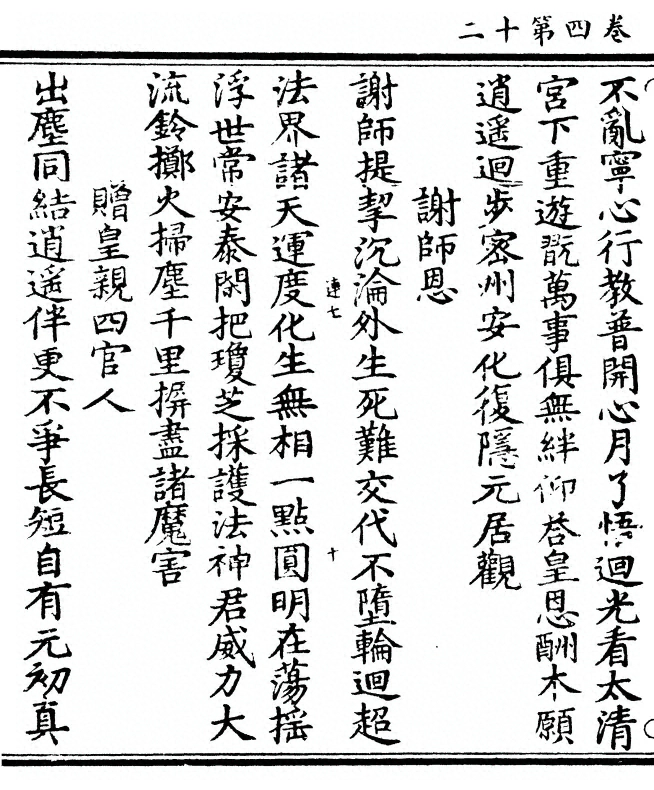 卷四第十二
不亂寧心行教普開心月了悟迴光看太清
宮下重遊翫萬事俱無絆仰荅皇恩酬本願
逍遥迴步密州安化復隱元居觀
謝師恩
謝師提挈沉淪外生死難交代不墮輪迴超
連七 十
法界諸天運度化生無相一點圓明在蕩揺
浮世常安泰閑把瓊芝採護法神君威力大
流鈴擲火掃塵千里摒盡諸魔害
贈皇親四官人
出塵同結逍遥伴更不爭長短自有元初真